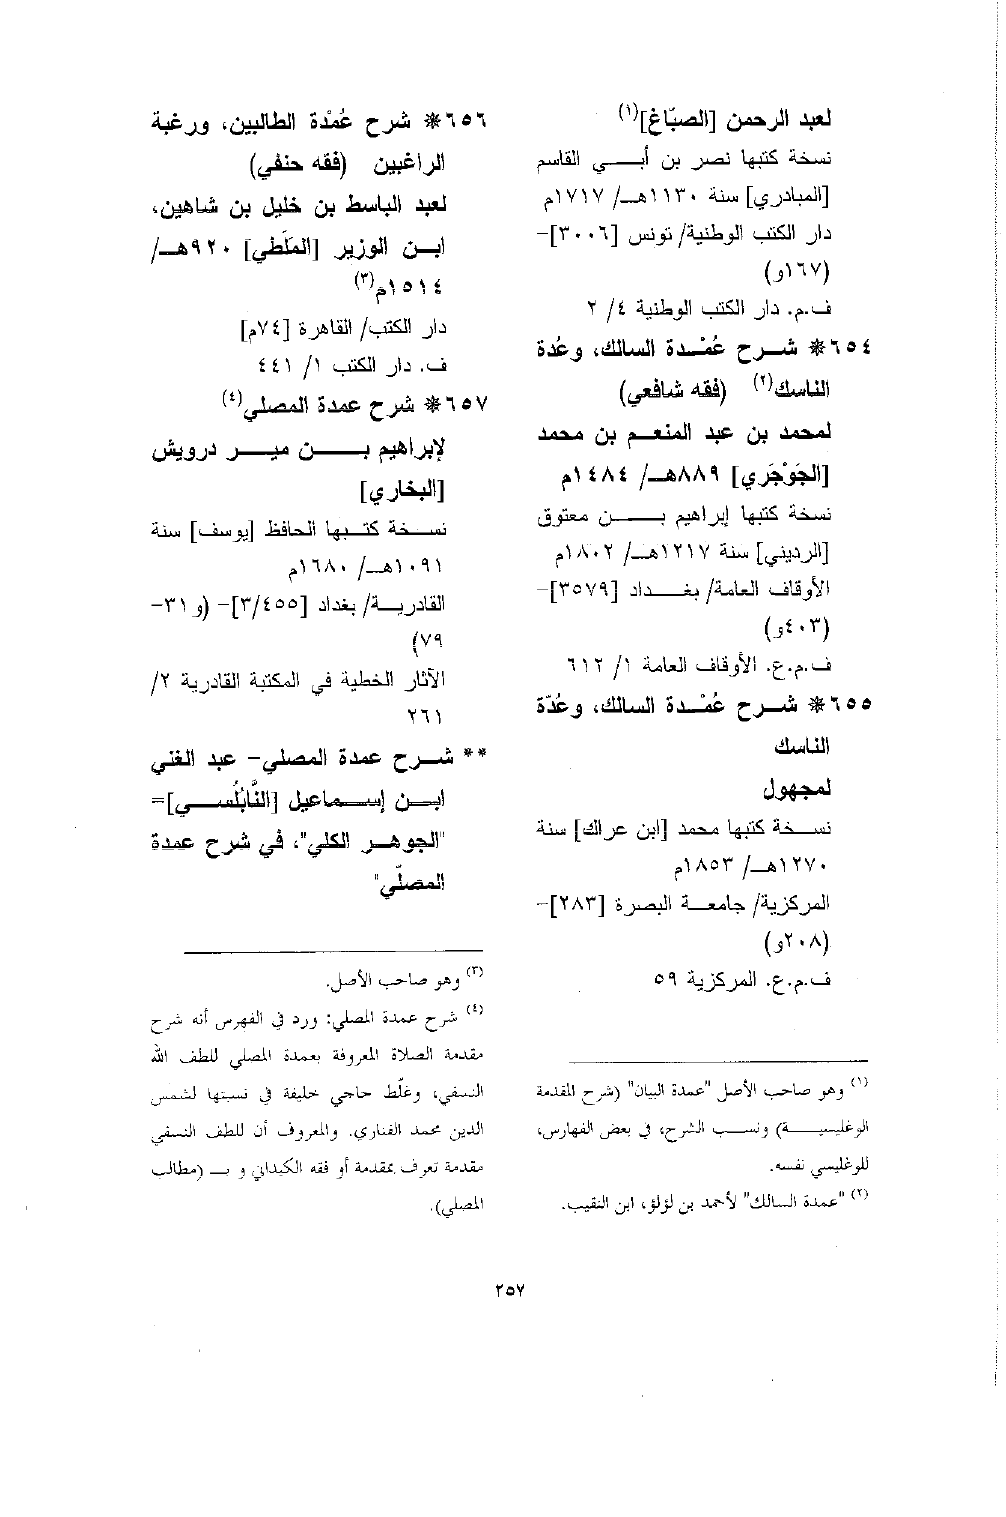 لعبد الرحمن [الصبّاغ](١)
نسخة كتبها نصر بن أبي القاسم
[المبادري] سنة ١١٣٠هـ/ ١٧١٧م
دار الكتب الوطنية/ تونس [٣٠٠٦]-
(١٦٧و)
ف.م. دار الكتب الوطنية ٤/ ٢
٦٥٤* شرح عُمْدة السالك، وعُدة
الناسك(٢) (فقه شافعي)
لمحمد بن عبد المنعم بن محمد
[الجَوْجَري] ٨٨٩هـ/ ١٤٨٤م
نسخة كتبها إبراهيم بن معتوق
[الرديني] سنة ١٢١٧هـ/ ١٨٠٢م
الأوقاف العامة/ بغداد [٣٥٧٩]-
(٤٠٣و)
ف.م.ع. الأوقاف العامة ١/ ٦١٢
٦٥٥* شرح عُمْدة السالك، وعُدّة
الناسك
لمجهول
نسخة كتبها محمد [ابن عراك] سنة
١٢٧٠هـ/ ١٨٥٣م
المركزية/ جامعة البصرة [٢٨٣]-
(٢٠٨و)
ف.م.ع. المركزية ٥٩
(١) وهو صاحب الأصل "عمدة البيان" (شرح المقدمة
الوغليسية) ونسب الشرح، في بعض الفهارس،
للوغليسي نفسه.
(٢) "عمدة السالك" لأحمد بن لؤلؤ، ابن النقيب.
٦٥٦* شرح عُمْدة الطالبين، ورغبة
الراغبين (فقه حنفي)
لعبد الباسط بن خليل بن شاهين،
ابن الوزير [المَلَطي] ٩٢٠هـ/
١٥١٤م(٣)
دار الكتب/ القاهرة [٧٤م]
ف. دار الكتب ١/ ٤٤١
٦٥٧* شرح عمدة المصلي(٤)
لإبراهيم بن مير درويش
[البخاري]
نسخة كتبها الحافظ [يوسف] سنة
١٠٩١هـ/ ١٦٨٠م
القادرية/ بغداد [٣/٤٥٥]- (و٣١-
٧٩)
الآثار الخطية في المكتبة القادرية ٢/
٢٦١
** شرح عمدة المصلي- عبد الغني
ابن إسماعيل [النَّابُلُسي]=
"الجوهر الكلي"، في شرح عمدة
المصلّي"
(٣) وهو صاحب الأصل.
(٤) شرح عمدة المصلي: ورد في الفهرس أنه شرح
مقدمة الصلاة المعروفة بعمدة المصلي للطف الله
النسفي، وغلّط حاجي خليفة في نسبتها لشمس
الدين محمد الفناري. والمعروف أن للطف النسفي
مقدمة تعرف بمقدمة أو فقه الكيداني و بـ (مطالب
المصلي).
٢٥٧